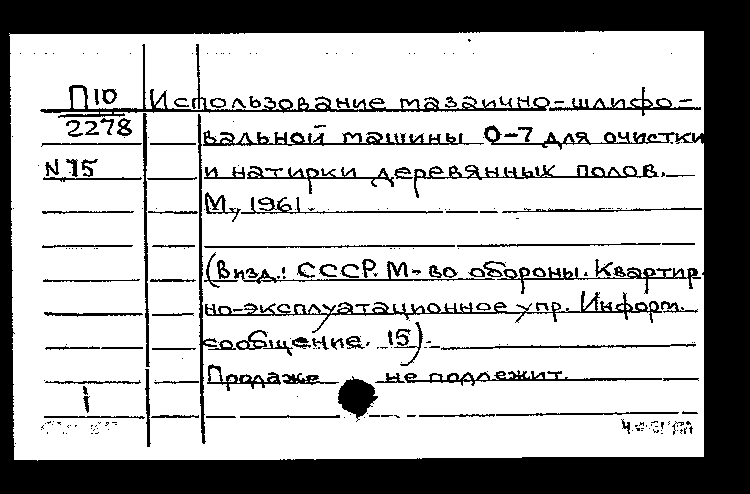 П10 Использование мазаично-шлифо-
2278 вальной машины О-7 для очистки
N 15 и натирки деревянных полов.
М., 1961.
(В изд.: СССР. М-во обороны. Квартир-
но-эксплуатационное упр. Информ.
сообщение. 15).
Продаже не подлежит.
1